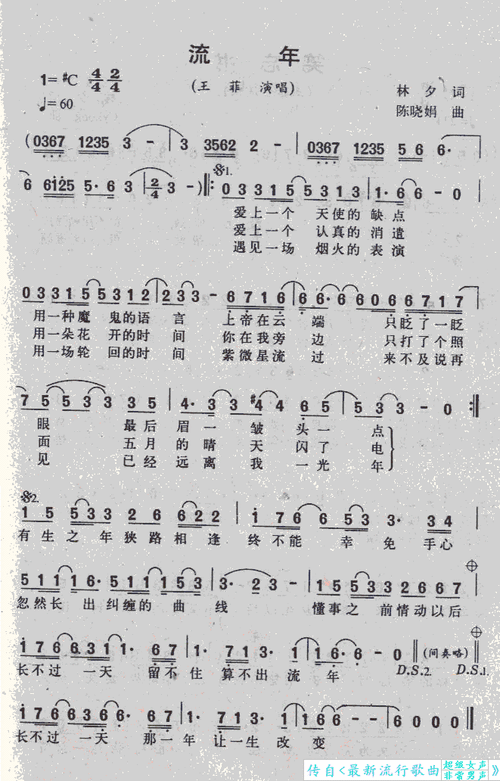 流 年
1=#C 4/4 2/4
(王 菲 演唱)
林 夕 词
♩=60
陈晓娟 曲
(0367 1235 3 - | 3 3562 2 - | 0367 1235 5 6 6· |
6 6125 5· 3 | 2/4 3 - ):‖: 0 3 3 1 5 5 3 1 3 | 1· 6 6 - 0 |
爱上一个 天使的 缺点
爱上一个 认真的 消遣
遇见一场 烟火的 表演
0 3 3 1 5 5 3 1 2 | 2 3 3 - - | 6 7 1 6 6 6· | 6 6 0 0 6 7 1 7 |
用一种魔 鬼的语 言 上帝在云 端 只眨了一眨
用一朵花 开的时 间 你在我旁 边 只打了个照
用一场轮 回的时 间 紫微星流 过 来不及说再
7 5 5 3 3 3 5 | 4· 3 3 3 #4 | 4 5 5 3 3 - 0 :‖
眼 最后 眉一 皱 头一 点
面 五月 的晴 天 闪了 电
见 已经 远离 我 一光 年
𝄋2.
1 5 5 3 3 2 6 6 | 1 7 6 6 5 3 3· 3 4 |
有生之年狭路相逢 终不能 幸免 手心
5 1 1 1 6· 5 1 1 5 5 | 3· 2 3 - | 0 5 1 1 5 3 3 2 6 6 7 |
忽然长 出纠缠的 曲 线 懂事之 前情动以后
1· 7 6 6 1· 6 7 1· | 7 1· 3 1· 1· 0 ‖ (间奏略) ‖
长不过 一天 留不 住 算不出 流 年 D.S.2. D.S.1.
1 7 6 6 3 6 6· 7 6 7 | 1· 7 1· 3 1 1 - ‖
长不过 一天 那一年 让一生 改 变
传自<最新流行歌曲 超级女声 非常男声 》